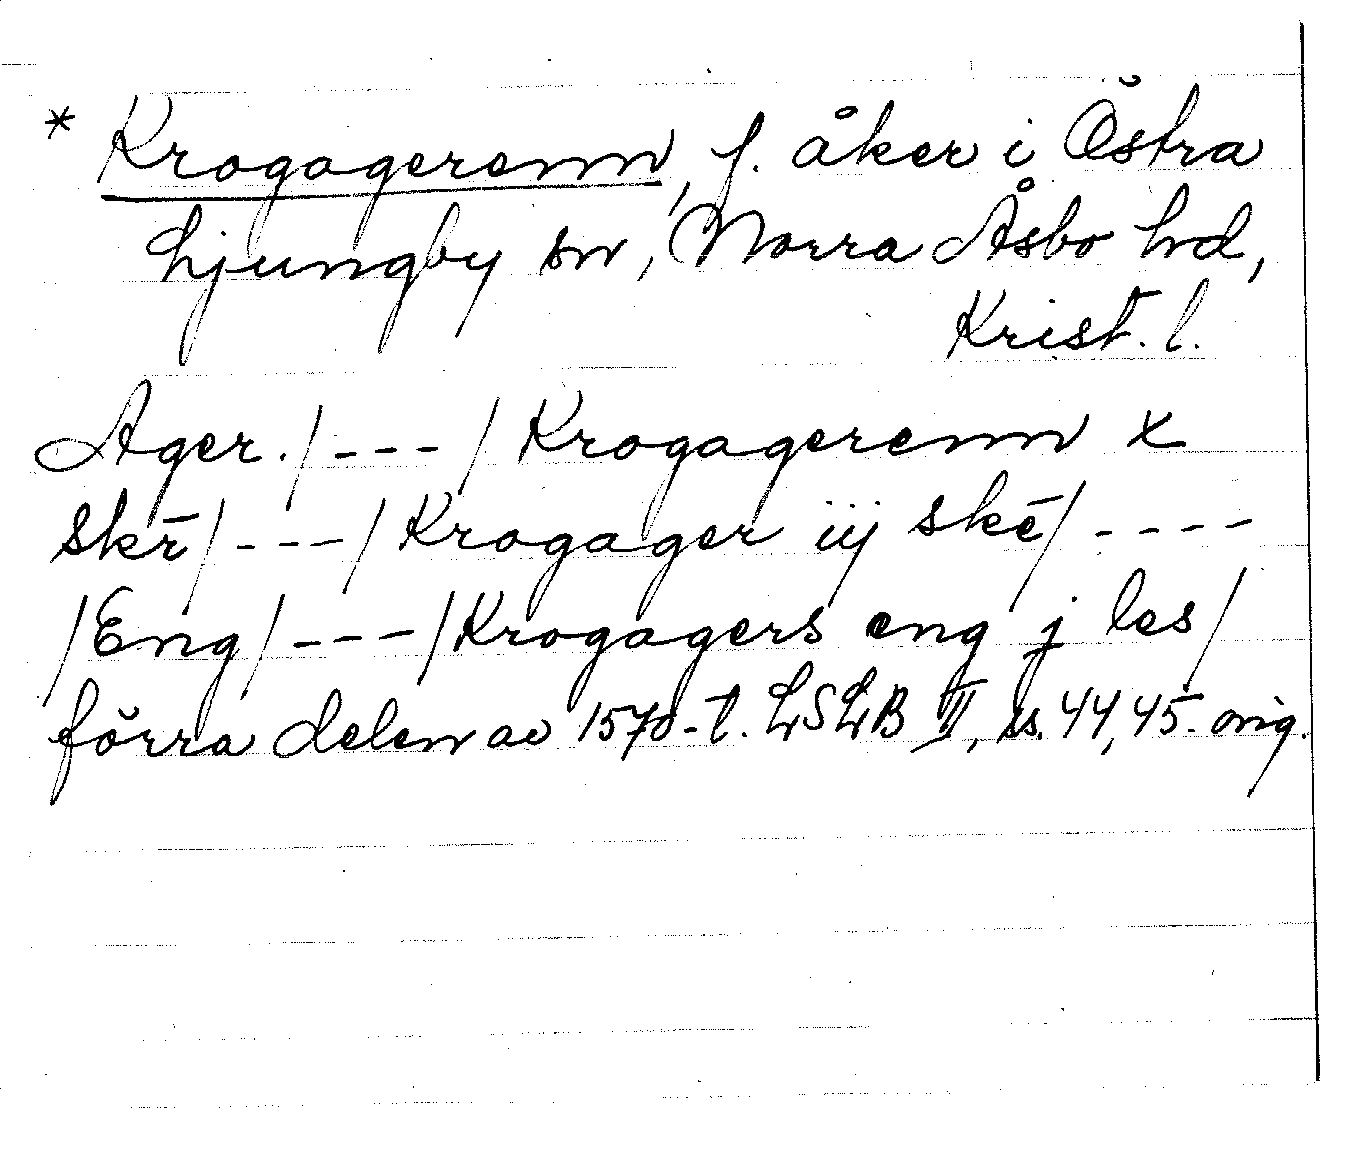 * Krogagerenn, f. åker i Östra
Ljungby sn, Norra Åsbo hd,
Krist. l.
Ager. /---/ Krogagerenn x
skē /---/ Krogager iij skē/----
/Eng/---/Krogagers eng j les/
förra delen av 1570-t. LSLB II, ss. 44, 45. orig.